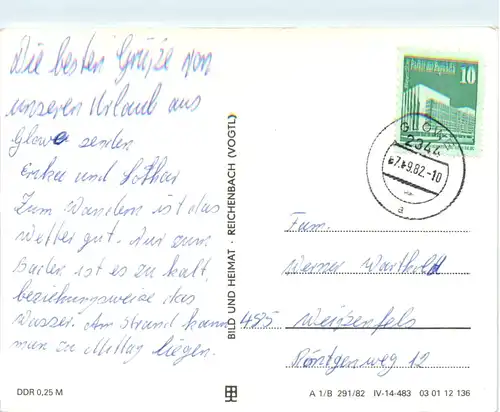 Die besten Grüße von
unseren Urlaub aus
Glowe senden
Erika und Lothar
Zum Wandern ist das
Wetter gut. Nur zum
Baden ist es zu kalt,
beziehungsweise das
Wasser. Am Strand kann
man zu Mittag liegen.
BILD UND HEIMAT · REICHENBACH (VOGTL)
10
GLOWE
2344
-7.-9.82.-10
a
Fam.
Werner Warthold
485 Weißenfels
Röntgenweg 12
DDR 0,25 M
A 1/B 291/82 IV-14-483 03 01 12 136